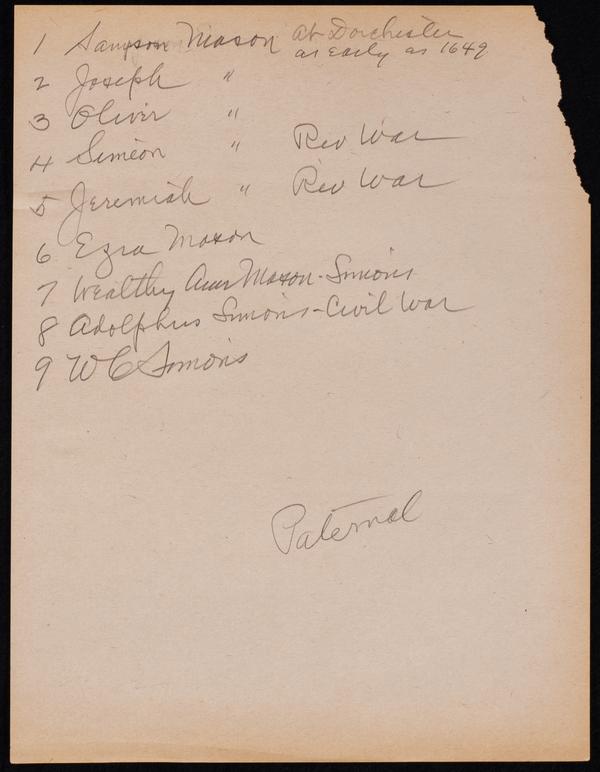 1 Sampson Mason at Dorchester
as early as 1649
2 Joseph "
3 Oliver "
4 Simeon " Rev War
5 Jeremiah " Rev War
6 Ezra Mason
7 Wealthy Ann Mason-Simons
8 Adolphus Simons-Civil War
9 W C Simons
Paternal